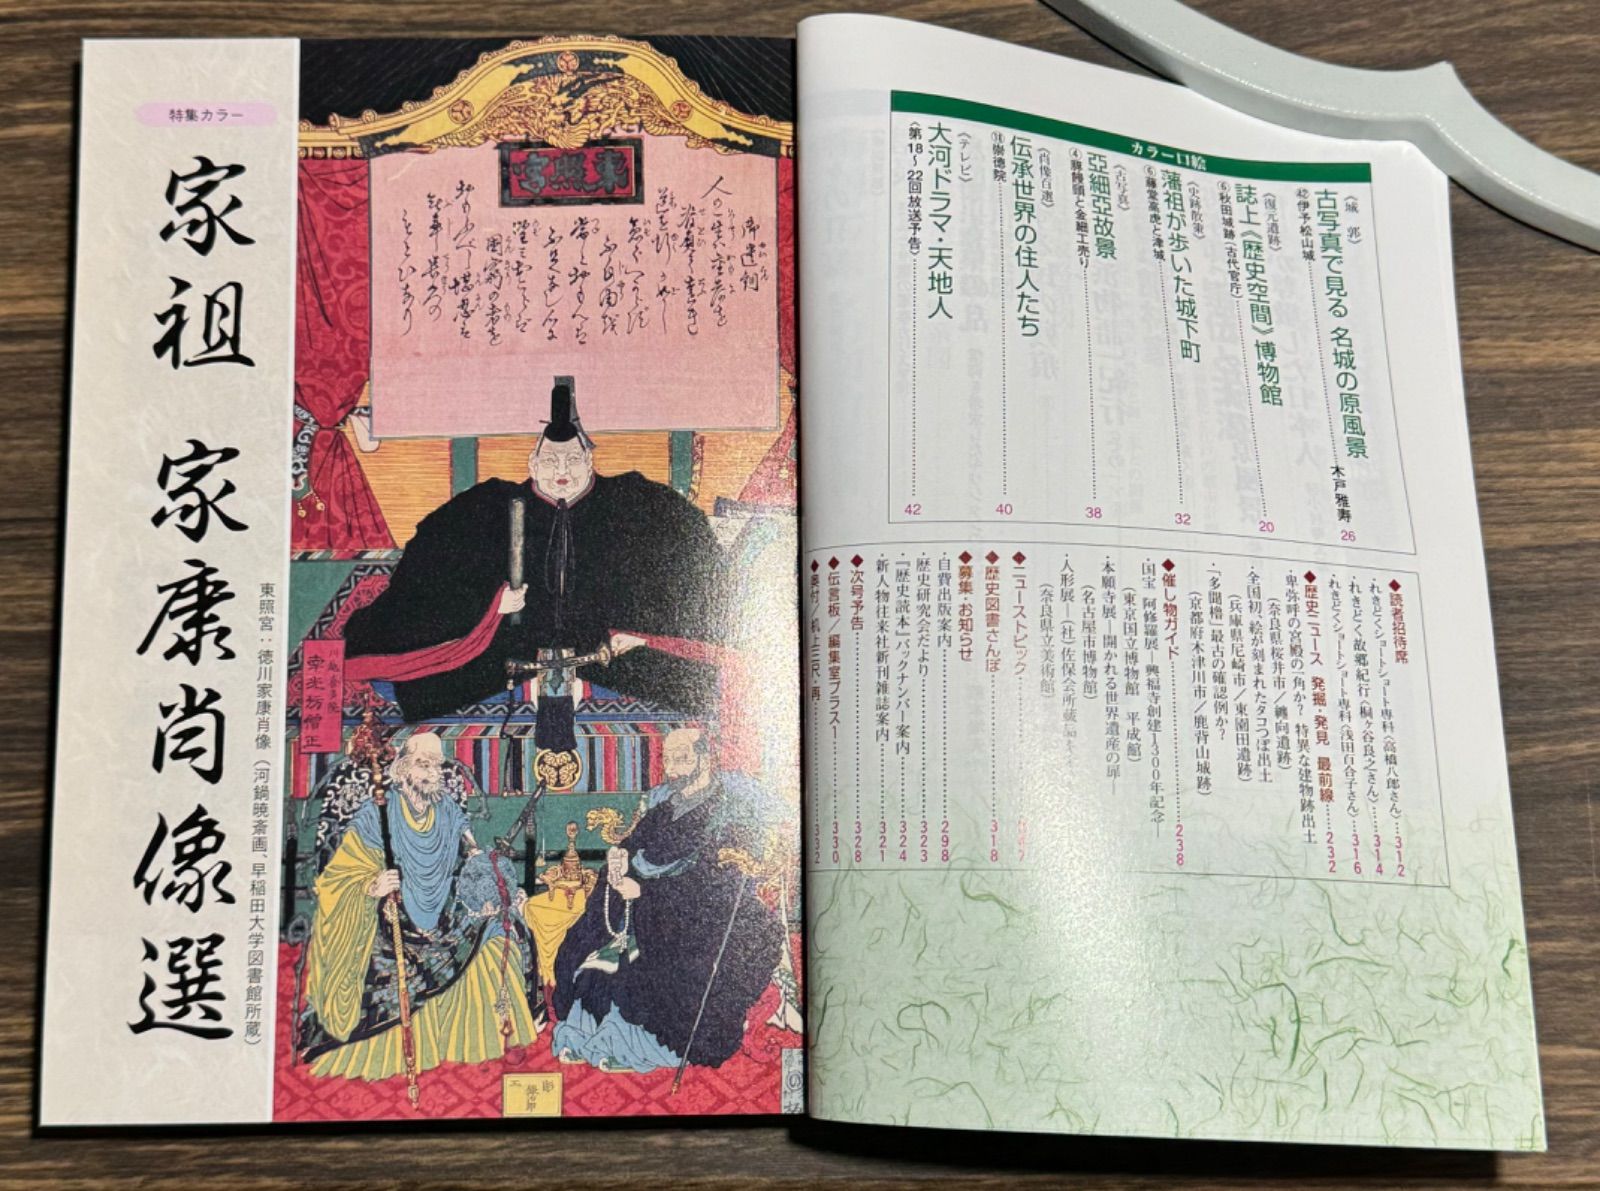 特集カラー
家祖 家康肖像選
東照宮：徳川家康肖像（河鍋暁斎画、早稲田大学図書館所蔵）
東照宮
御遺訓
人の一生は重荷を
負て遠き
道を行がごとし
いそぐべからず
不自由を
常とおもへば
不足なし心に
望おこらば
困窮の時を
おもひ
出すべし堪忍は
無事長久の
川越喜多院
幸光坊僧正
カラー口絵
《城　郭》
古写真で見る 名城の原風景 木戸雅寿 26
㊷伊予松山城
《復元遺跡》
誌上《歴史空間》博物館 20
⑥秋田城跡（古代官庁）
《史跡散策》
藩祖が歩いた城下町 32
⑥藤堂高虎と津城
《古写真》
亞細亞故景 38
④豚饅頭と金細工売り
《肖像百選》
伝承世界の住人たち 40
⑱崇徳院
《テレビ》
大河ドラマ・天地人 42
〈第18〜22回放送予告〉
◆読者招待席
・れきどくショートショート専科〈高橋八郎さん〉 312
・れきどく故郷紀行〈桐ヶ谷良之さん〉 314
・れきどくショートショート専科〈浅田百合子さん〉 316
◆歴史ニュース 発掘・発見 最前線 232
・卑弥呼の宮殿の一角か？ 特異な建物跡出土
（奈良県桜井市／纏向遺跡）
・全国初、絵が刻まれたタコつぼ出土
（兵庫県尼崎市／東園田遺跡）
・「多聞櫓」最古の確認例か？
（京都府木津川市／鹿背山城跡）
◆催し物ガイド 238
・国宝 阿修羅展―興福寺創建1300年記念―
（東京国立博物館　平成館）
・本願寺展―開かれる世界遺産の扉―
（名古屋市博物館）
・人形展―（社）佐保会所蔵品
（奈良県立美術館）
◆ニューストピック
◆歴史図書さんぽ 318
◆募集・お知らせ
・自費出版案内 298
・歴史研究会だより 323
・『歴史読本』バックナンバー案内 324
・新人物往来社新刊雑誌案内 321
◆次号予告 328
◆伝言板／編集室プラス1 330
◆奥付／机上三尺・再 332